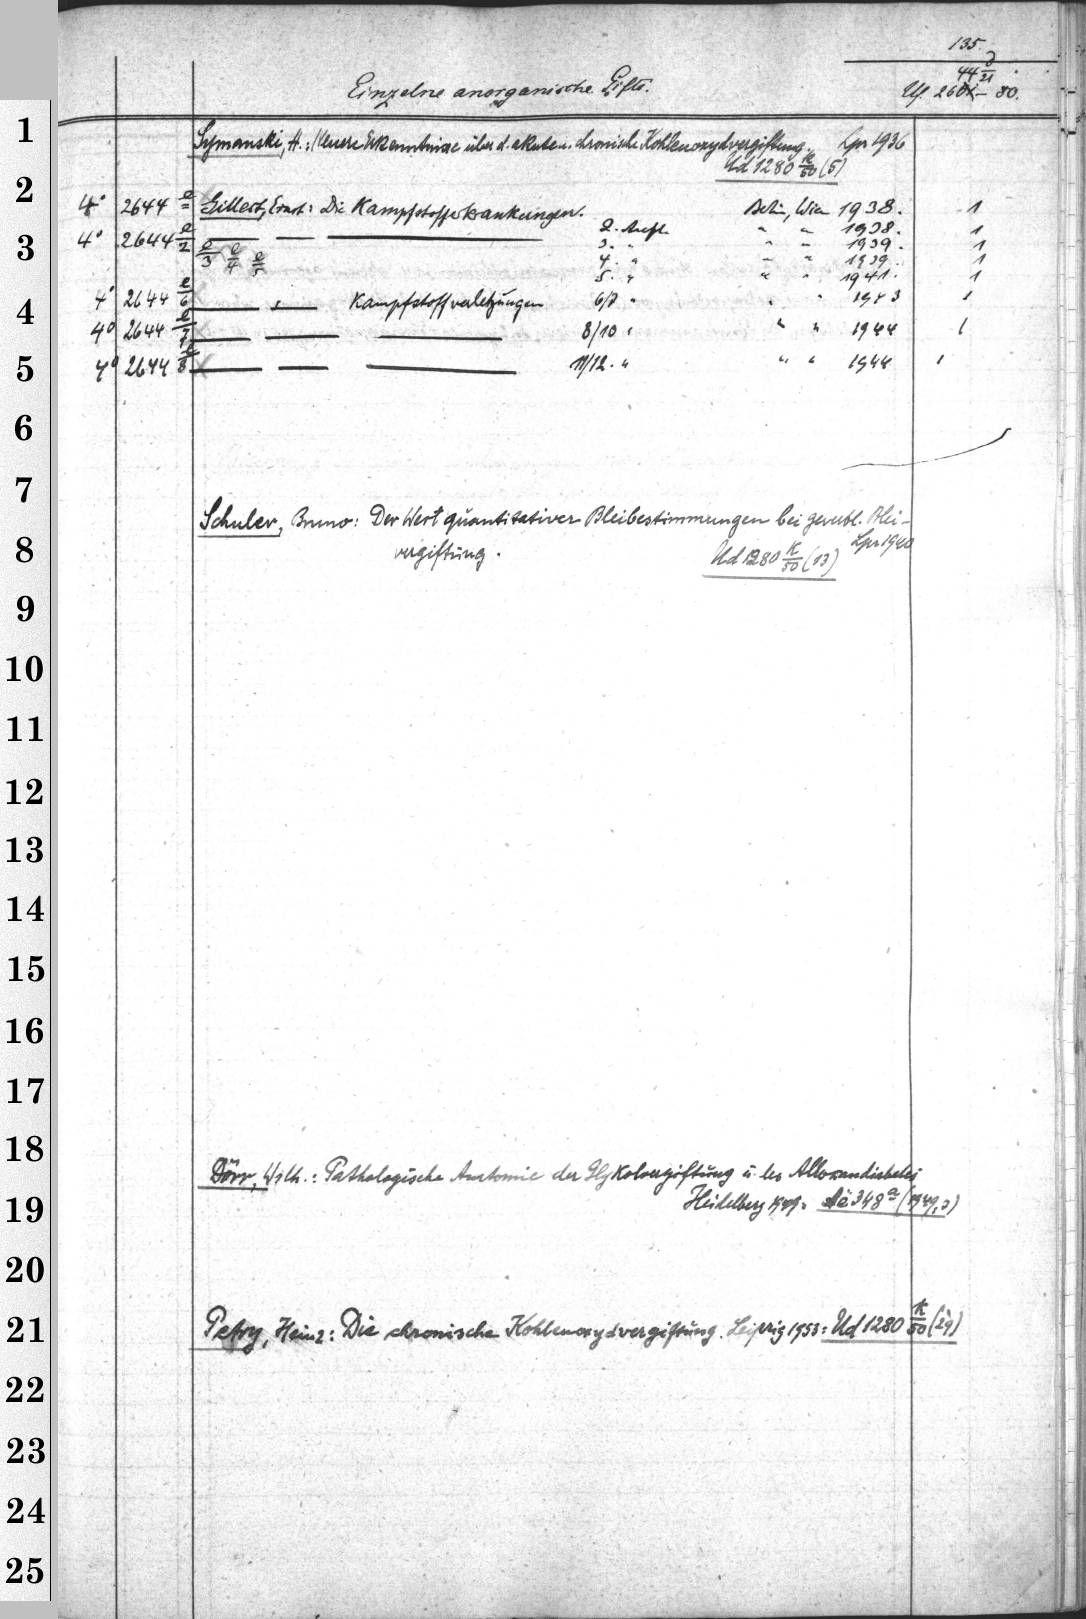 135.
44 d/21
Einzelne anorganische Gifte.
Uf. 260 – 80.
1
Symanski, H.: Neuere Erkenntnisse über d. akute u. chronische Kohlenoxydvergiftung. Lpz 1936
Ud 1280 k/50 (5)
2
4° 2644 e Gillert, Ernst: Die Kampfstofferkrankungen. Berlin, Wien 1938. 1
3
4° 2644 e/2 — — — 2. Aufl. " " 1938. 1
e/3 e/4 e/5 3. " " " 1939. 1
4. " " " 1939. 1
5. " " " 1941. 1
4
4° 2644 e/6 — , — Kampfstoffverletzungen 6/7 " " " 1943 1
4° 2644 e/7 — — — 8/10 " " " 1944 1
5
4° 2644 e/8 — — — 11/12. " " " 1944 1
6
7
Schuler, Bruno: Der Wert quantitativer Bleibestimmungen bei gewerbl. Blei-
8
vergiftung. Ud 1280 k/50 (13) Lpz 1940
9
10
11
12
13
14
15
16
17
18
Dörr, Wilh.: Pathologische Anatomie der Glykolvergiftung u. des Alloxandiabetes
19
Heidelberg 1949. 348 a (1949,
20
21
Petry, Heinz: Die chronische Kohlenoxydvergiftung. Leipzig 1953: Ud 1280 k/50 (29)
22
23
24
25